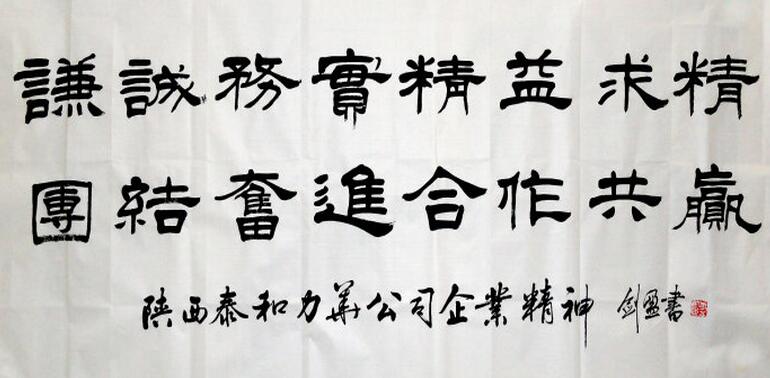 謙誠務實精益求精
團結奮進合作共贏
陕西泰和力華公司企業精神 剑盈書